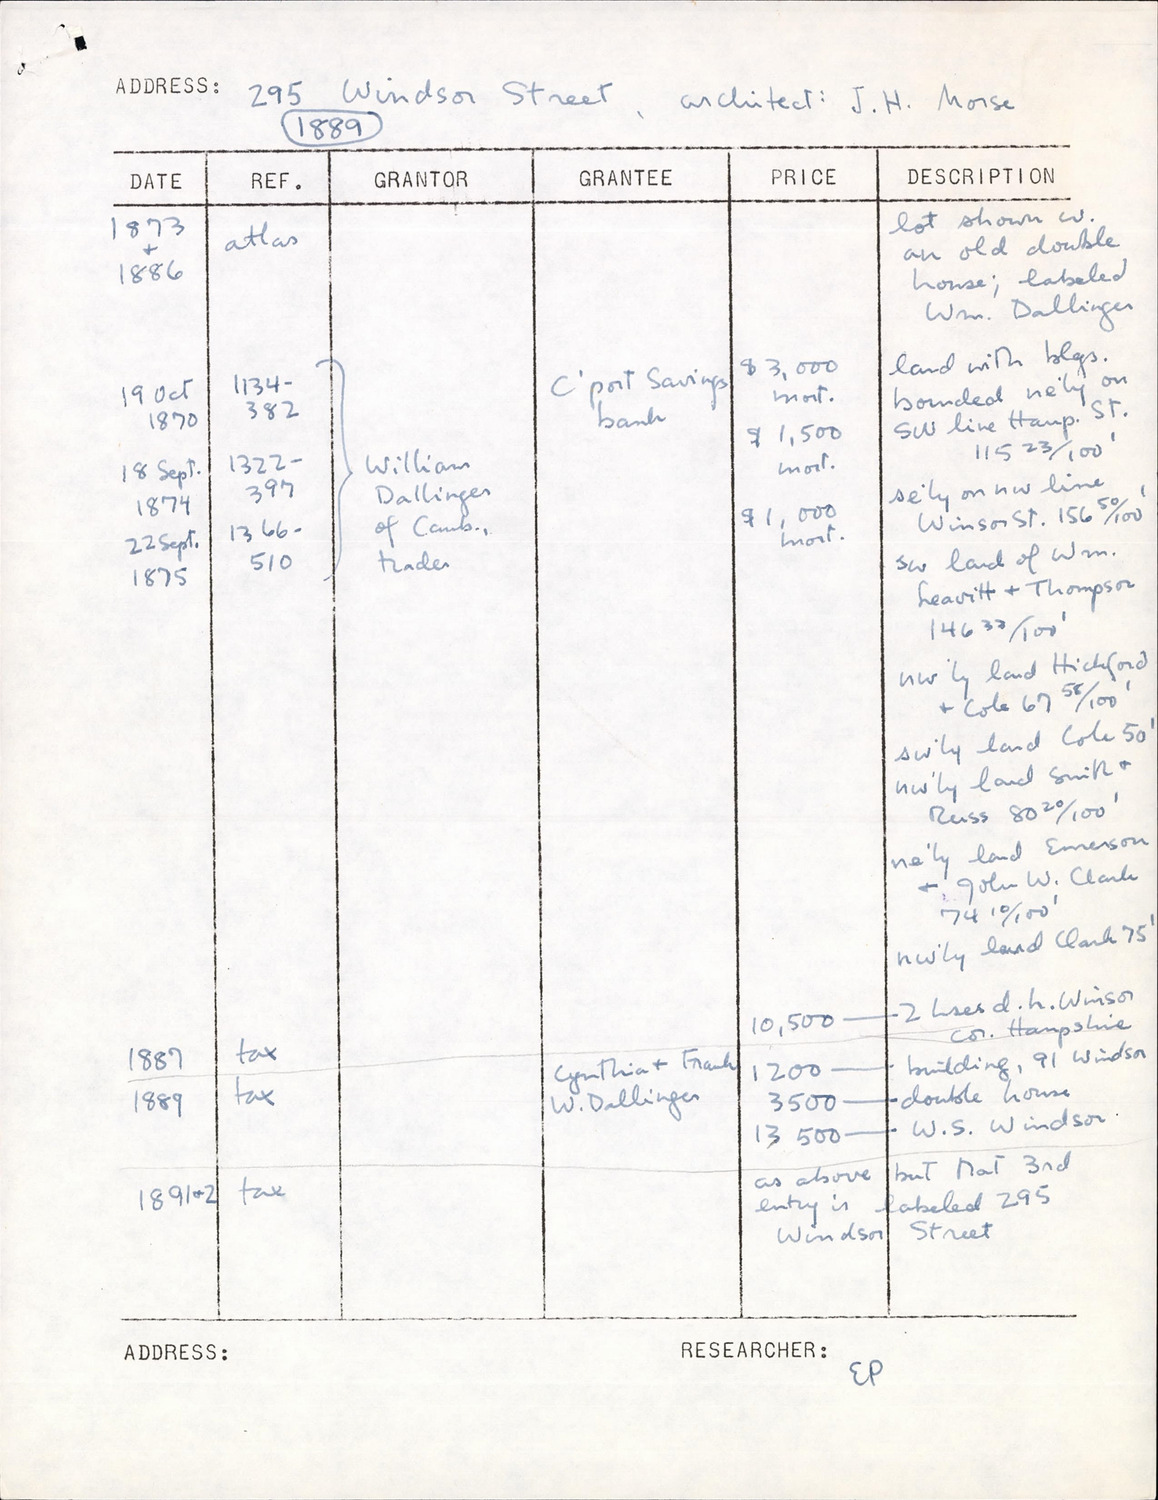 ADDRESS: 295 Windsor Street, architect: J.H. Morse
1889
DATE REF. GRANTOR GRANTEE PRICE DESCRIPTION
1873
+
1886
atlas
lot shown w.
an old double
house; labeled
Wm. Dallinger
19 Oct
1870
1134-
382
18 Sept.
1874
1322-
397
22 Sept.
1875
1366-
510
William
Dallinger
of Camb.,
trader
C'port Savings
bank
$3,000
mort.
$1,500
mort.
$1,000
mort.
land with blgs.
bounded ne'ly on
SW line Hamp. St.
115 23/100'
se'ly on nw line
Winsor St. 156 50/100'
sw land of Wm.
Leavitt + Thompson
146 33/100'
nw'ly land Hickford
+ Cole 67 58/100'
sw'ly land Cole 50'
nw'ly land Smith +
Russ 80 20/100'
ne'ly land Emerson
+ John W. Clark
74 10/100'
nw'ly land Clark 75'
10,500 — 2 hses d.h. Winsor
cor. Hampshire
1887 tax
Cynthia + Frank
W. Dallinger
1200 — building, 91 Windsor
1889 tax
3500 — double house
13 500 — W.S. Windsor
1891+2 tax
as above but that 3rd
entry is labeled 295
Windsor Street
ADDRESS:
RESEARCHER:
EP